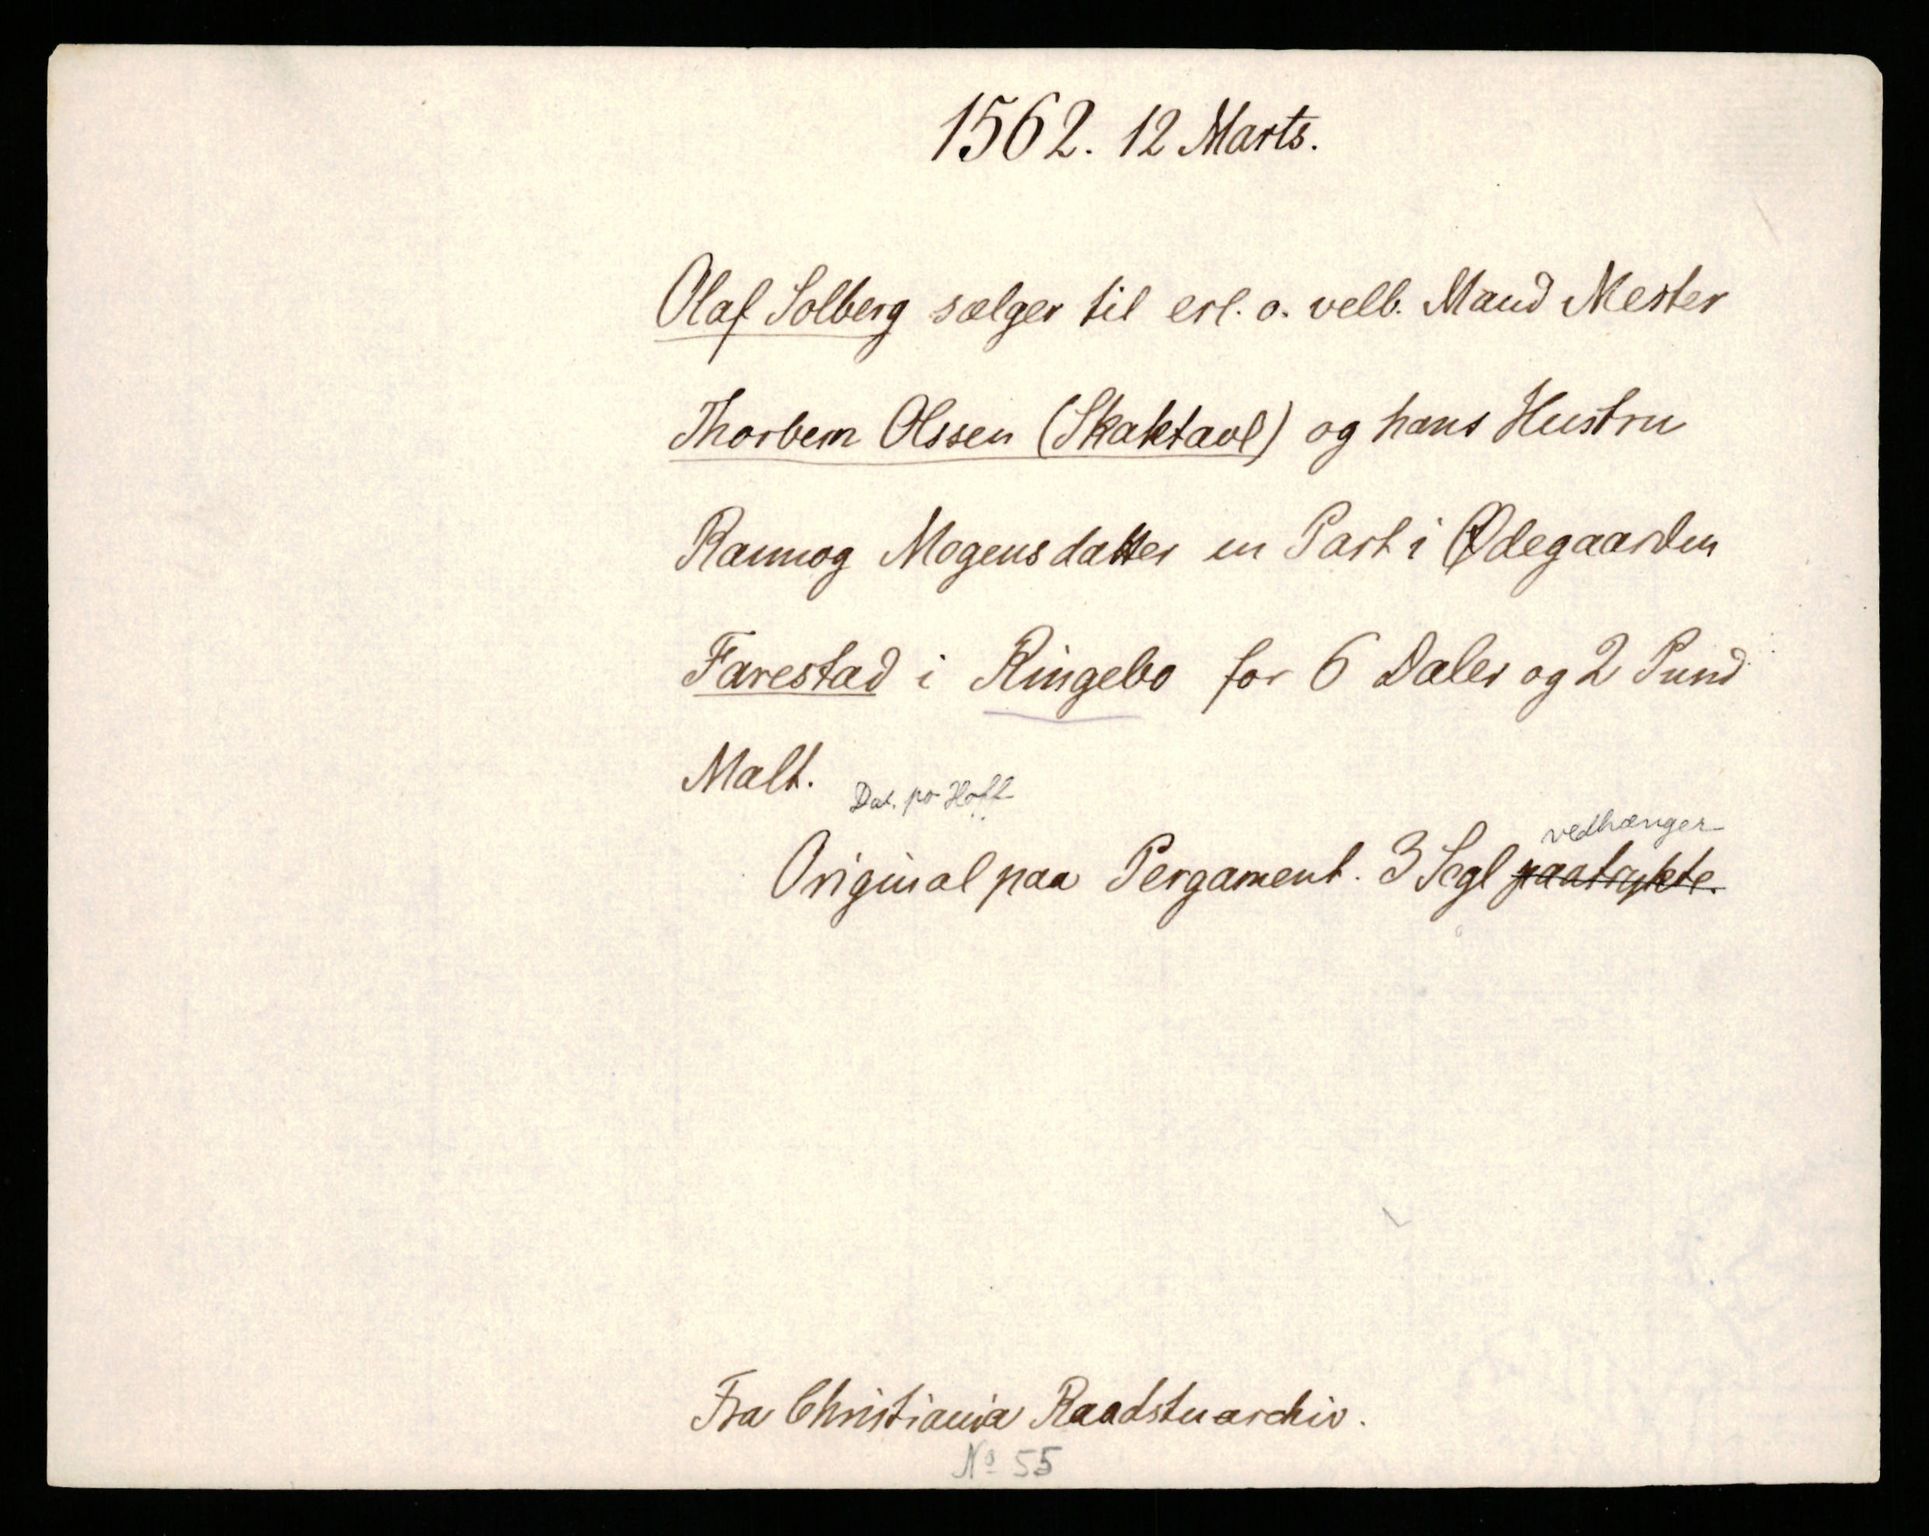 1562. 12 Marts.
Olaf Solberg sælger til erl. o. velb. Mand Mester
Thorbern Olssen (Skaktavl) og hans Hustru
Rannog Mogensdatter en Part i Ødegaarden
Farestad i Ringebo for 6 Daler og 2 Pund
Malt.
Dat. po Hoff
vedhænger
Original paa Pergament. 3 Segl paatrykte.
Fra Christiania Raadstuarchiv.
No 55